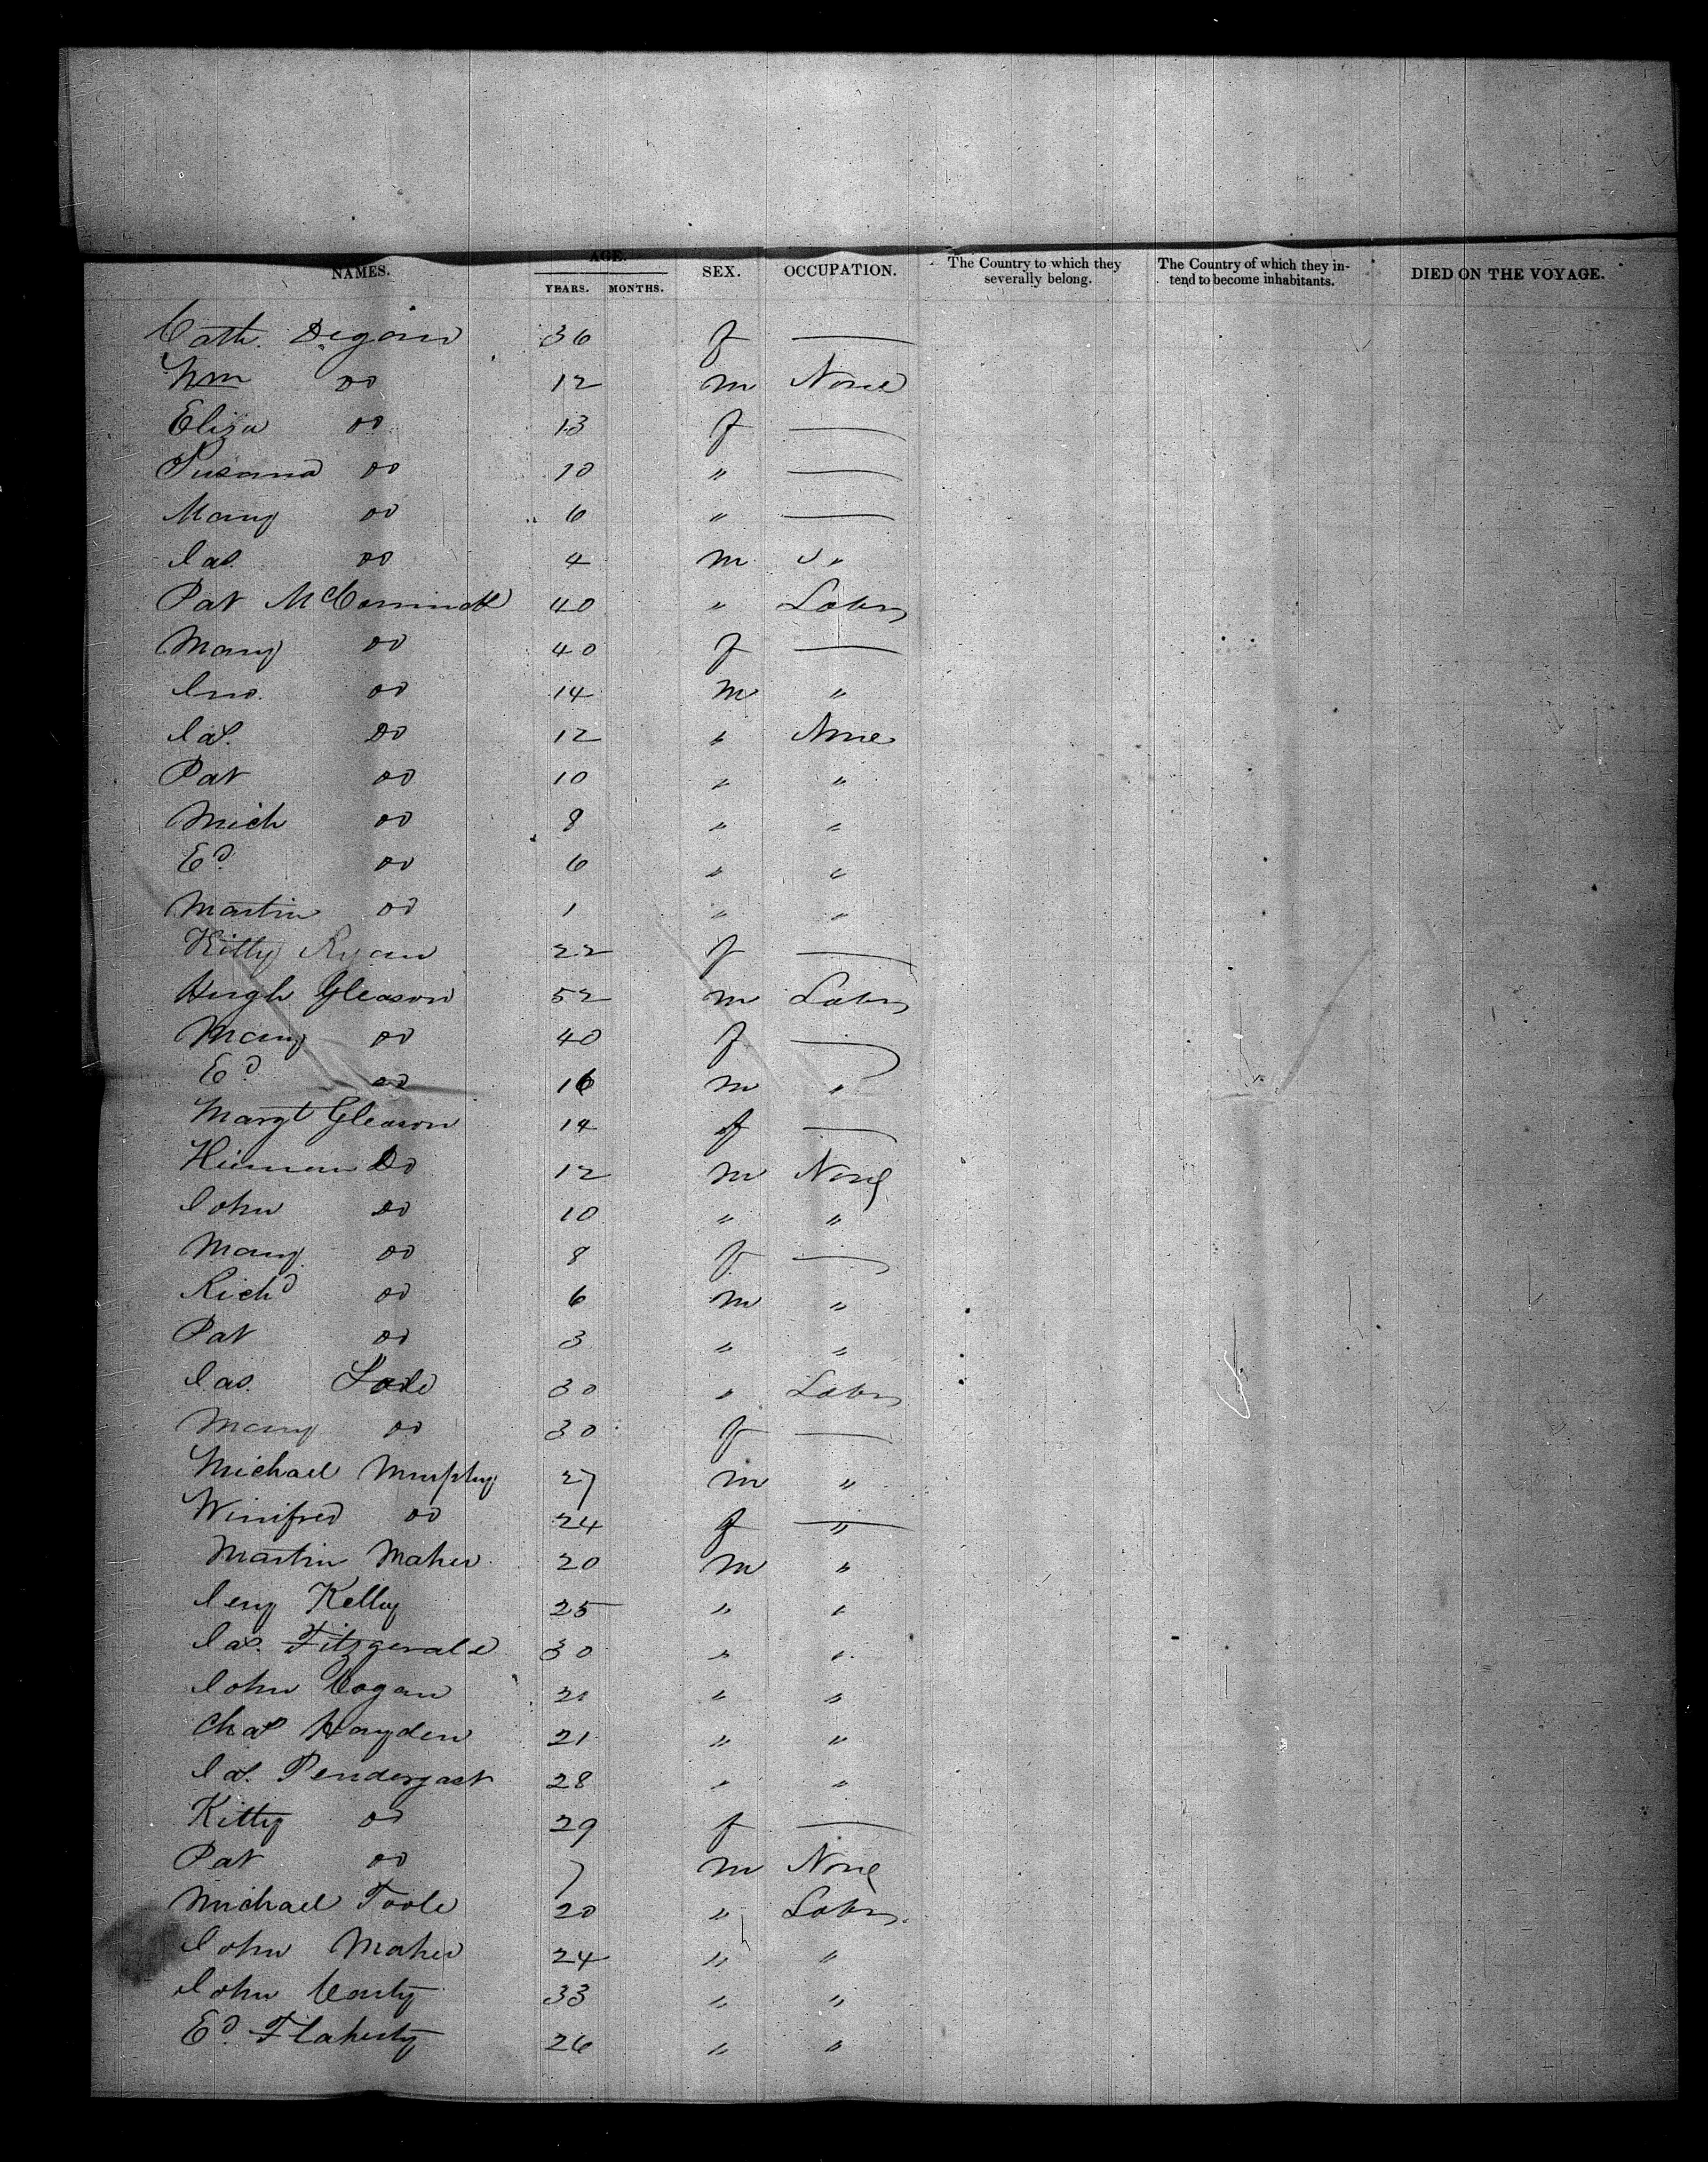 NAMES. AGE. YEARS. MONTHS. SEX. OCCUPATION. The Country to which they severally belong. The Country of which they intend to become inhabitants. DIED ON THE VOYAGE.
Cath. Degan 36 f —
Wm do 12 m None
Eliza do 13 f —
Susana do 10 " —
Mary do 6 " —
Jas. do 4 m "
Pat 40 " Labr
Mary do 40 f —
Jno. do 14 m "
Jas. Do 12 " None
Pat do 10 " "
Mich do 8 " "
Ed. do 6 " "
Martin do 1 " "
Kitty Ryan 22 f —
Hugh Gleason 52 m Labr
Mary do 40 f —
Ed. do 16 m "
Margt Gleason 14 f —
Do 12 m None
John Do 10 " "
Mary do 8 f —
Richd do 6 m "
Pat do 3 " "
Jas. 30 " Labr
Mary do 30 f —
Michael Murphy 27 m "
Winifred do 24 f "
Martin Maher 20 m "
Kelly 25 " "
Jas. Fitzgerald 30 " "
John Cogan 21 " "
Chas Hayden 21 " "
Jas. Pendergast 28 " "
Kitty do 29 f —
Pat do 7 m None
Michael Toole 20 " Labr
John Maher 24 " "
John Carty 33 " "
Ed. Flaherty 26 " "